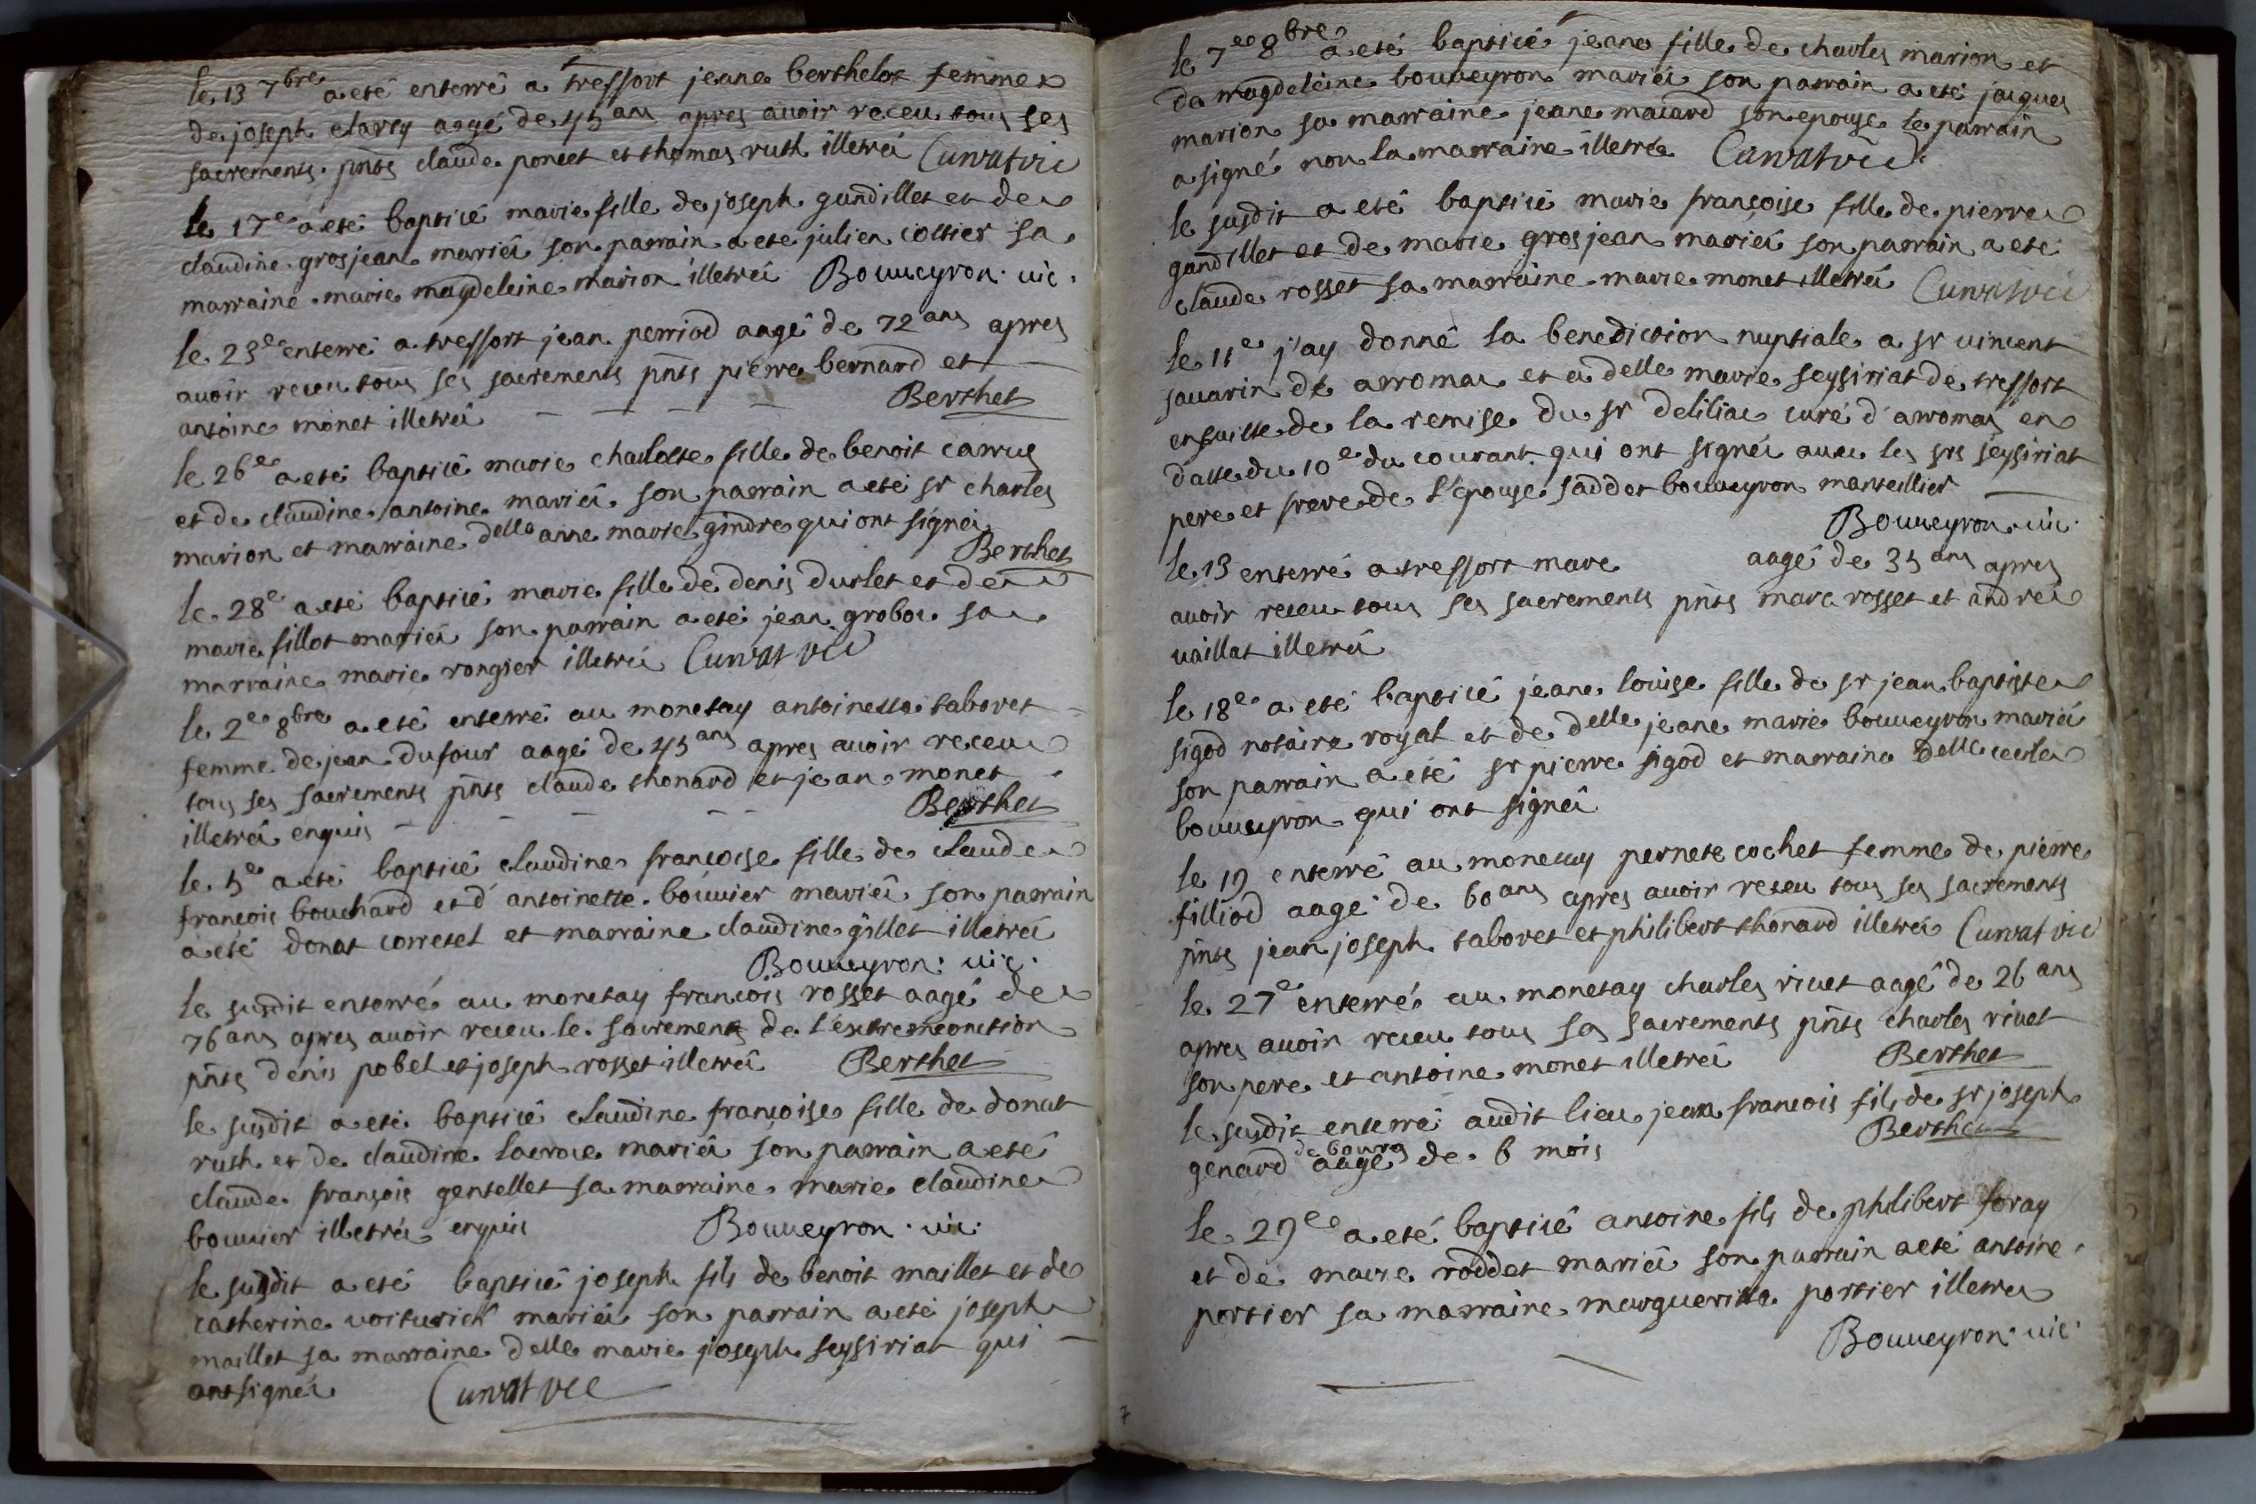 le 13 7bre a eté enterré a tressort jeane berthelot femme
de joseph clarcy aagé de 45 ans apres avoir receu tous ses
sacrements. pnts claude poncet et thomas ruth illetrés Curvat vic
le 17e a eté baptisé marie fille de joseph gandillet et de
claudine grosjean mariés son parrain a ete julien coltier sa
marraine marie magdeleine marion illetrés Bouveyron. vic.
le 23e enterré a tressort jean perriod aagé de 72 ans apres
avoir receu tous ses sacrements pnts pierre bernard et
antoine monet illetrés Berthet
le 26e a eté baptisé marie charlotte fille de benoit carruz
et de claudine antoine mariés son parrain a eté sr charles
marion et marraine delle anne marie gindre qui ont signés
Berthet
le 28e a eté baptisé marie fille de denis durlet et de
marie fillot mariés son parrain a eté jean grobos sa
marraine marie rongier illetrés Curvat vic
le 2e 8bre a eté enterré au monetay antoinette taboret
femme de jean dufour aagé de 45 ans apres avoir receu
tous ses sacrements pnts claude thonard et jean monet
illetrés enquis Berthet
le 5e a eté baptisé claudine françoise fille de claude
françois bouchard et d'antoinette bouvier mariés son parrain
a eté donat corretel et marraine claudine gillet illetrés
Bouveyron. vic.
le susdit enterré au monetay françois rosset aagé de
76 ans apres avoir receu le sacrements de l'extremeonction
pnts denis pobel et joseph rosset illetrés Berthet
le susdit a eté baptisé claudine françoise fille de donat
ruth et de claudine lacroix mariés son parrain a eté
claude françois gentellet sa marraine marie claudine
bouvier illetrés enquis Bouveyron. vic.
le susdit a eté baptisé joseph fils de benoit maillet et de
catherine voiturier mariés son parrain a eté joseph
maillet sa marraine delle marie joseph seysiriat qui
ont signés Curvat vic
le 7e 8bre a eté baptisé jeane fille de charles marion et
de magdeleine bouveyron mariés son parrain a eté jacques
marion sa marraine jeane macard son epouse le parrain
a signé non la marraine illetrée Curvat vic.
le susdit a eté baptisé marie françoise fille de pierre
gandillet et de marie grosjean mariés son parrain a eté
claude rosset sa marraine marie monet illetrés Curvat vic
le 11e j'ay donné la benediction nuptiale a sr vincent
savarin de arromas et a delle marie seysiriat de tressort
ensuitte de la remise du sr deliliac curé d'arromas en
datte du 10e du courant qui ont signés avec les srs seysiriat
pere et frere de l'epouse saddet bouveyron marteillier
Bouveyron. vic.
le 13 enterré a tressort marc aagé de 35 ans apres
avoir receu tous ses sacrements pnts marc rosset et andré
vaillat illetrés
le 18e a eté baptisé jeane louise fille de sr jean baptiste
sigod notaire royal et de delle jeane marie bouveyron mariés
son parrain a eté sr pierre sigod et marraine delle cecile
bouveyron qui ont signés
le 19 enterré au monetay pernete cochet femme de pierre
filliod aagé de 60 ans apres avoir receu tous ses sacrements
pnts jean joseph taboret et philibert thonard illetrés Curvat vic
le 27e enterré au monetay charles rivet aagé de 26 ans
apres avoir receu tous ses sacrements pnts charles rivet
son pere et antoine monet illetrés Berthet
le susdit enterré audit lieu jean françois fils de sr joseph
genard de bourg aagé de 6 mois Berthet
le 29e a eté baptisé antoine fils de philibert foray
et de marie roddet mariés son parrain a eté antoine
portier sa marraine marguerite portier illetrés
Bouveyron. vic.
7